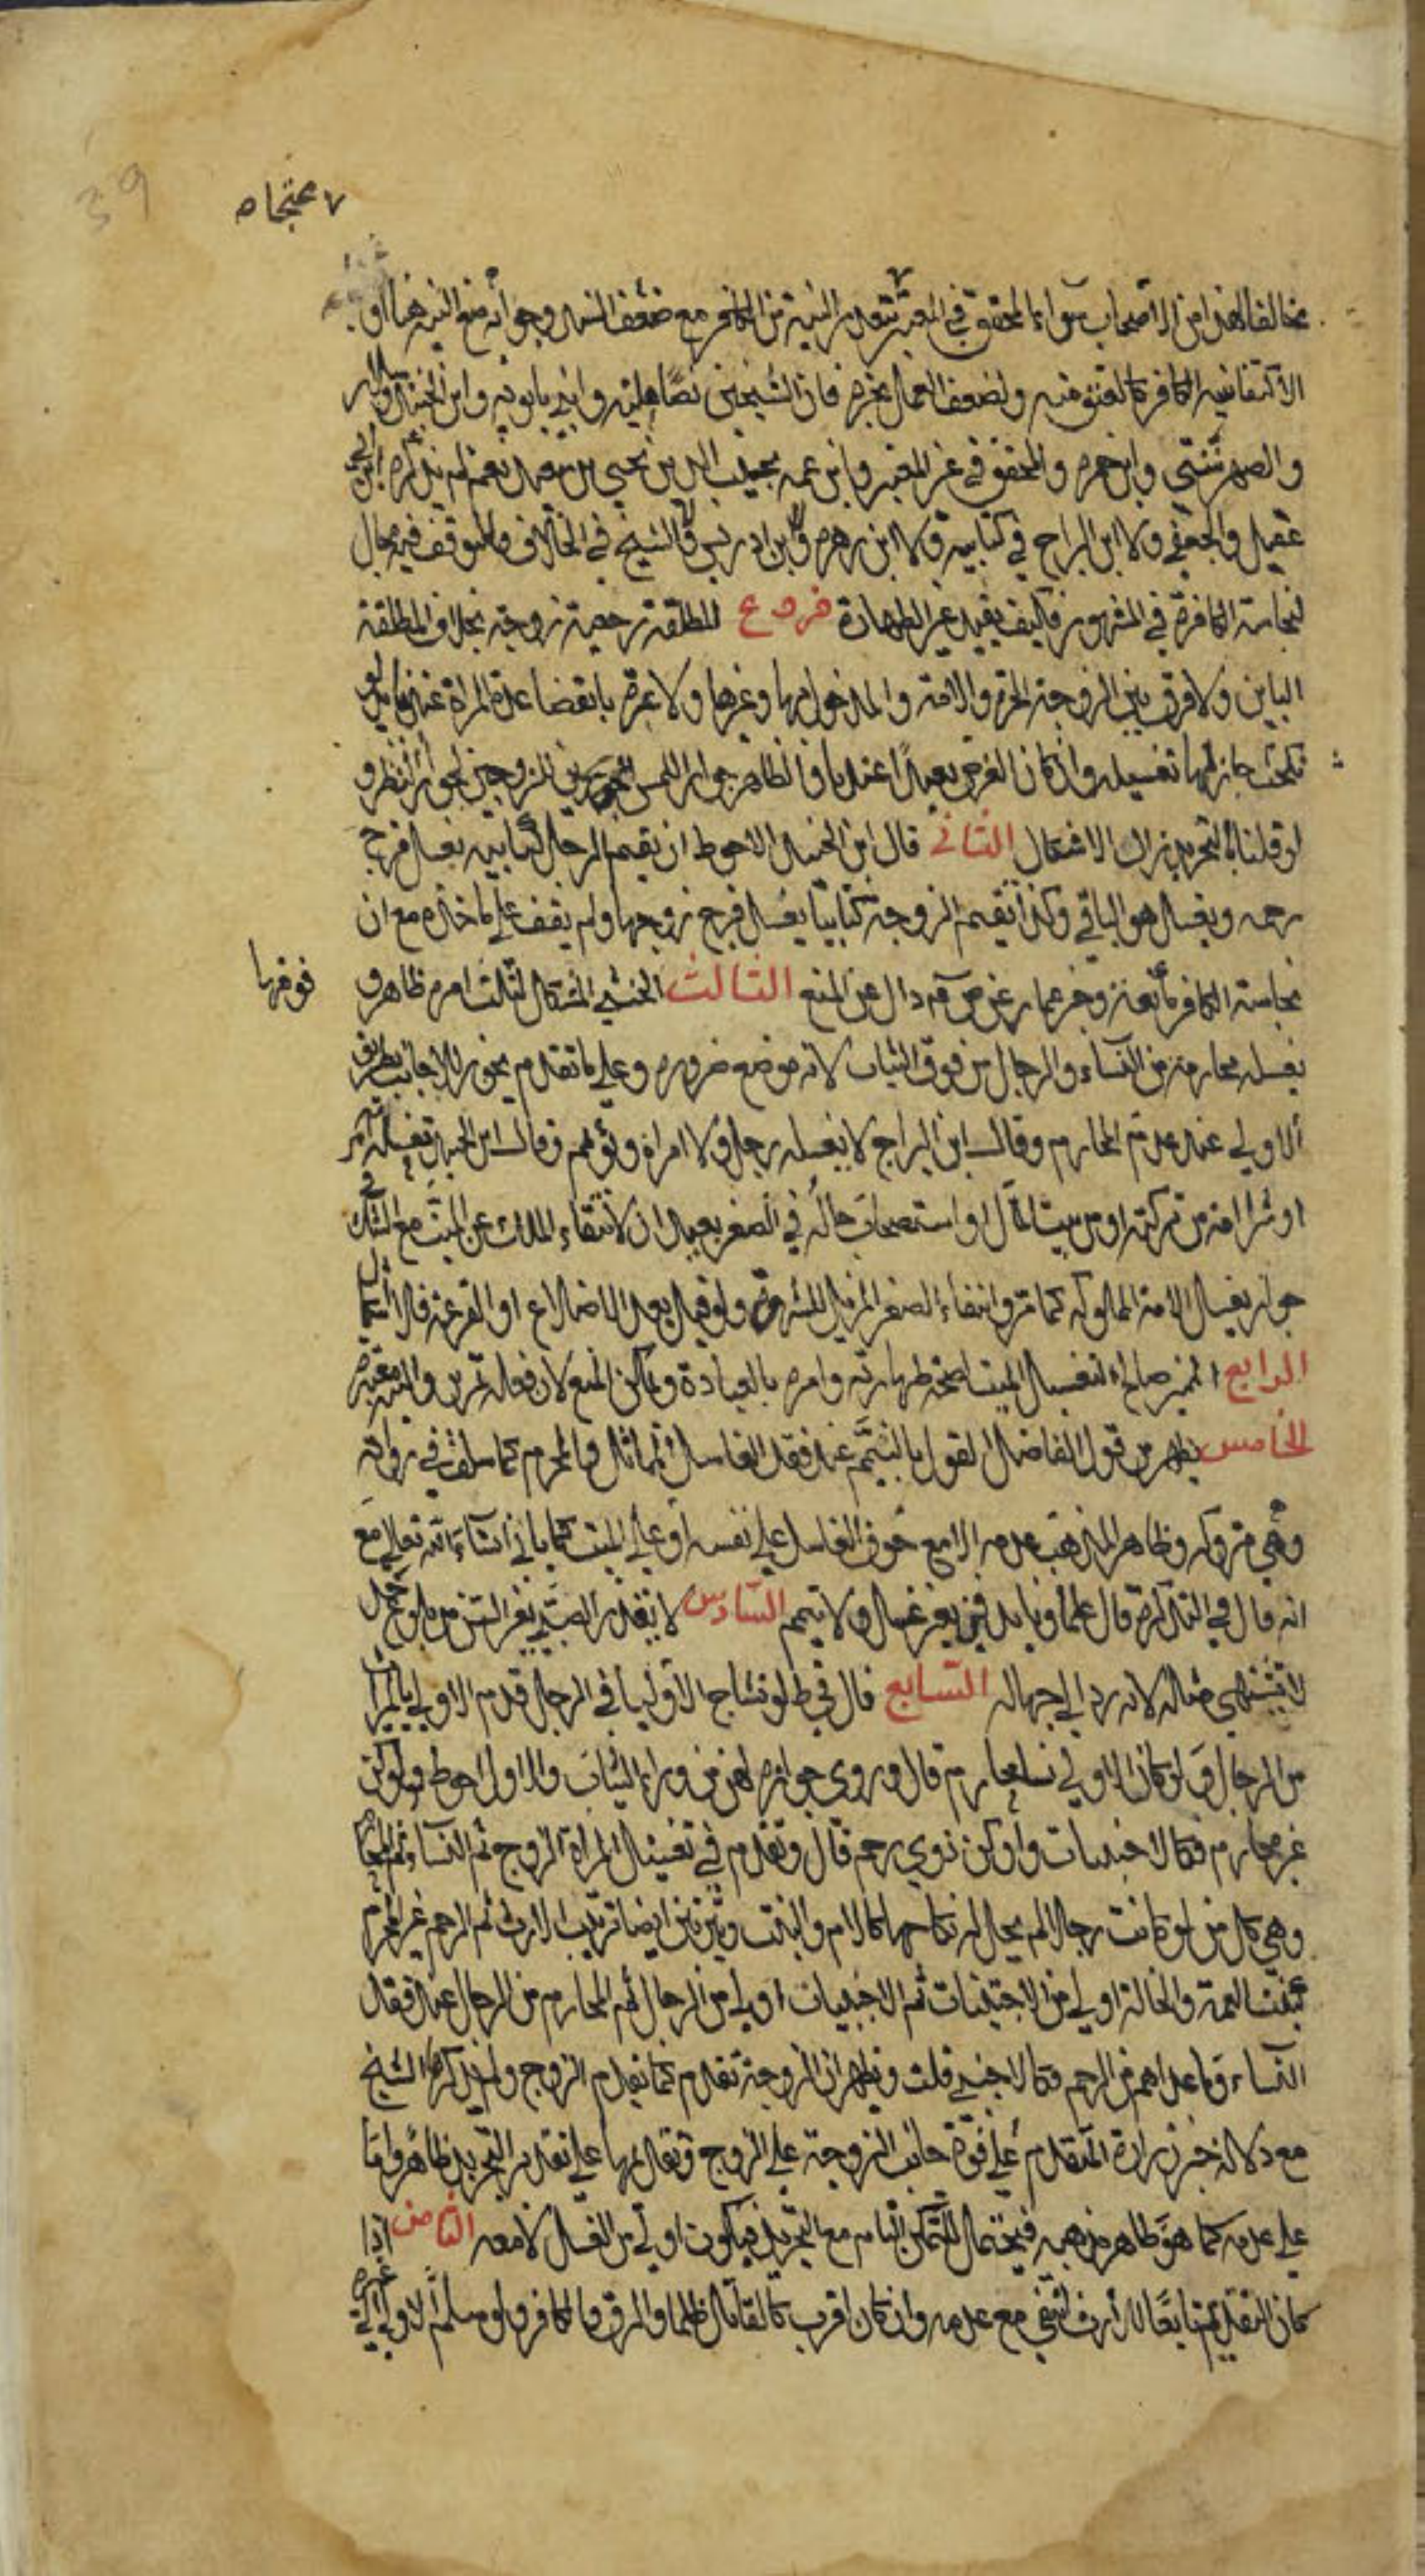 39
محتجا ه
مخالفا لهذا من الاصحاب سوى المحقق في المعتبر بتعذر النية من الكافر مع ضعف السند وجوابه منع النية هنا او
الاكتفا بنية الكافر كالعتق منه وضعف العمل يجبره فان الشيخين نصا عليه وابنا بابويه وابن الجنيد وسلار
والصهرشتي وابن حمزه والمحقق في غير المعتبر وابن عمه نجيب الدين يحيى بن سعيد نعم لم يذكره ابن ابي
عقيل والجعفي ولا ابن البراج في كتابيه ولا ابن زهره وابن ادريس ولا الشيخ في الخلاف والتوقف فيه مجال
لنجاسة الكافر في المشهور فكيف يفيد غيره الطهارة فروع المطلقة رجعية زوجة بخلاف المطلقة
الباين ولا فرق بين الزوجة الحرة والامة والمدخول بها وغيرها ولا عبرة بانقضا عدة المراة عندنا بل لو
نكحت جاز لها تغسيله وان كان الفرض بعيدا عندنا والظاهر جواز اللمس بين الزوجين كجواز النظر و
لو قلنا بالتجريد زال الاشكال الثاني قال ابن الجنيد الاحوط ان يقيم الرجل كتابية بغسل فرج
رحمه ويغسل هو الباقي وكذا تقيم الزوجة كتابيا يغسل فرج زوجها ولم يقف على ماخذه مع ان
نجاسة الكافر مانعة وخبر عمار عن ص ع م دال على المنع الثالث الخنثى المشكل لثلث امره ظاهر و
فوقها
يغسله محارمه من النساء والرجال من فوق الثياب لانه موضع ضرورة وعلى ما تقدم يجوز للاجانب بطريق
الاولى عند عدم المحارم وقال ابن البراج لا يغسله رجل ولا امراة وييمم وقال ابن الجنيد تغسله امته
او شرا امة من تركته او من بيت المال او استصحاب حاله في الصغر بعيدان لانتفاء الملك عن الميت مع الشك في
جواز تغسيل الامة المملوكه كما مر وانتفاء الصغر المزيل للشهوة ولو قيل بعد الاضلاع او القرعة فلا اشكال
الرابع المميز صالح لتغسيل الميت لصحة طهارته وامره بالعبادة ويمكن المنع لان فعله تمرين والنية معتبرة
الخامس يظهر من قول الفاضل القول بالتيمم عند فقد الغاسل المماثل والمحرم كما سلف في رواية
وهي متروكه وظاهر المذهب عدمه الا مع خوف الغاسل على نفسه او على الميت كما ياتي انشاء الله تعالى مع
انه قال في التذكرة قال علماونا يدفن بغير غسل ولا تيمم السادس لا تقدر الصبية بغير السن من بلوغ حد
لا تشتهي مثله لانه رد الى جهاله السابع قال في ط لو تشاح الاوليا في الرجل قدم الاولى بالميراث
من الرجال ولو كان الاولى نسا محارم قال وروي جوازه لهن من وراء الثياب والاول احوط ولو كن
غير محارم فكالاجنبيات ولو كن ذوي رحم قال وتقدم في تغسيل المراة الزوج ثم النساء ثم المحارم
وهي كل من لو كانت رجلا لم يحل له نكاحها كالام والبنت ويترتبن ايضا ترتيب الارث ثم الرحم غير المحرم
كبنت العمة والخالة اولى من الاجنبيات ثم الاجنبيات اولى من الرجال ثم المحارم من الرجال عند فقد
النساء وما عداهم من الرحم فكالاجنبي قلت ويظهر ان الزوجة تقدم كما يقدم الزوج ولم يذكره الشيخ
مع دلالة خبر زرارة المتقدم على قوة جانب الزوجة على الزوج وتقديمها على تقدير التجريد ظاهر واما
على عدمه كما هو ظاهر مذهبه فيحتمل للتمكن التام مع التجريد فيكون اولى من الغسل لا معه الثامن اذا
كان التقديم تابعا للارث انتفى مع عدمه وان كان اقرب كالقاتل ظلما والرق والكافر ولو سلم الاولى الى غيره